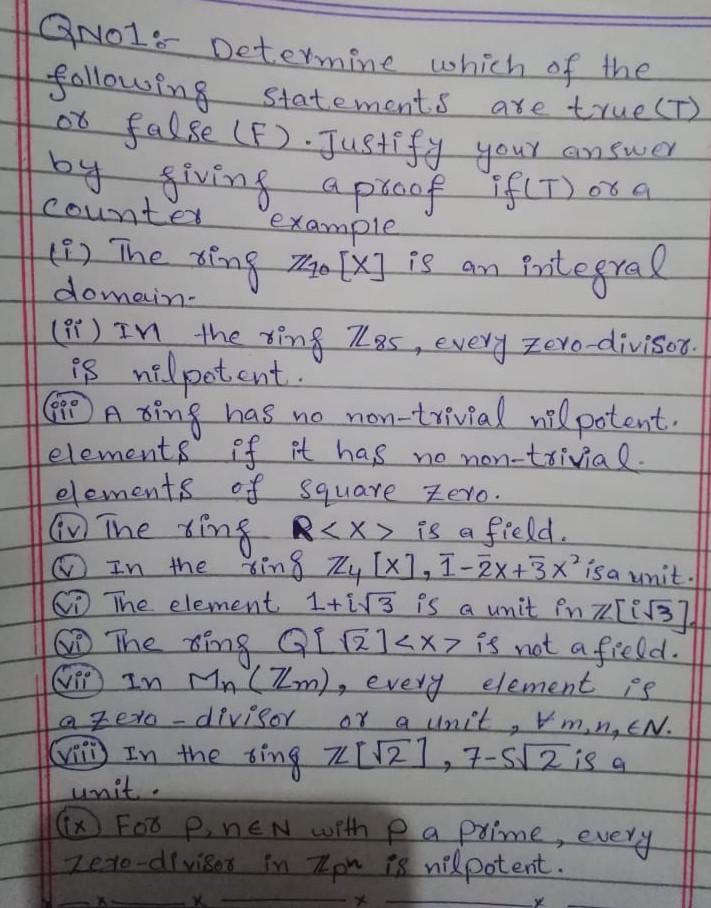 QNO1:- Determine which of the
following statements are true (T)
or false (F). Justify your answer
by giving a proof if (T) or a
counter example
(i) The ring ℤ10 [X] is an integral
domain-
(ii) IN the ring ℤ85, every zero-divisor.
is nilpotent.
(iii) A ring has no non-trivial nilpotent.
elements if it has no non-trivial.
elements of square zero.
(iv) The ring R<X> is a field.
(v) In the ring ℤ4 [X], 1̄-2̄x+3̄x² is a unit.
(vi) The element 1+i√3 is a unit in ℤ[i√3]
(vi) The ring Q[√2]<x> is not a field.
(vii) In Mn (ℤm), every element is
a zero-divisor or a unit, ∀m,n,∈N.
(viii) In the ring ℤ[√2], 7-5√2 is a
unit.
(ix) For P,n∈N with P a prime, every
zero-divisor in ℤpⁿ is nilpotent.
x x x x